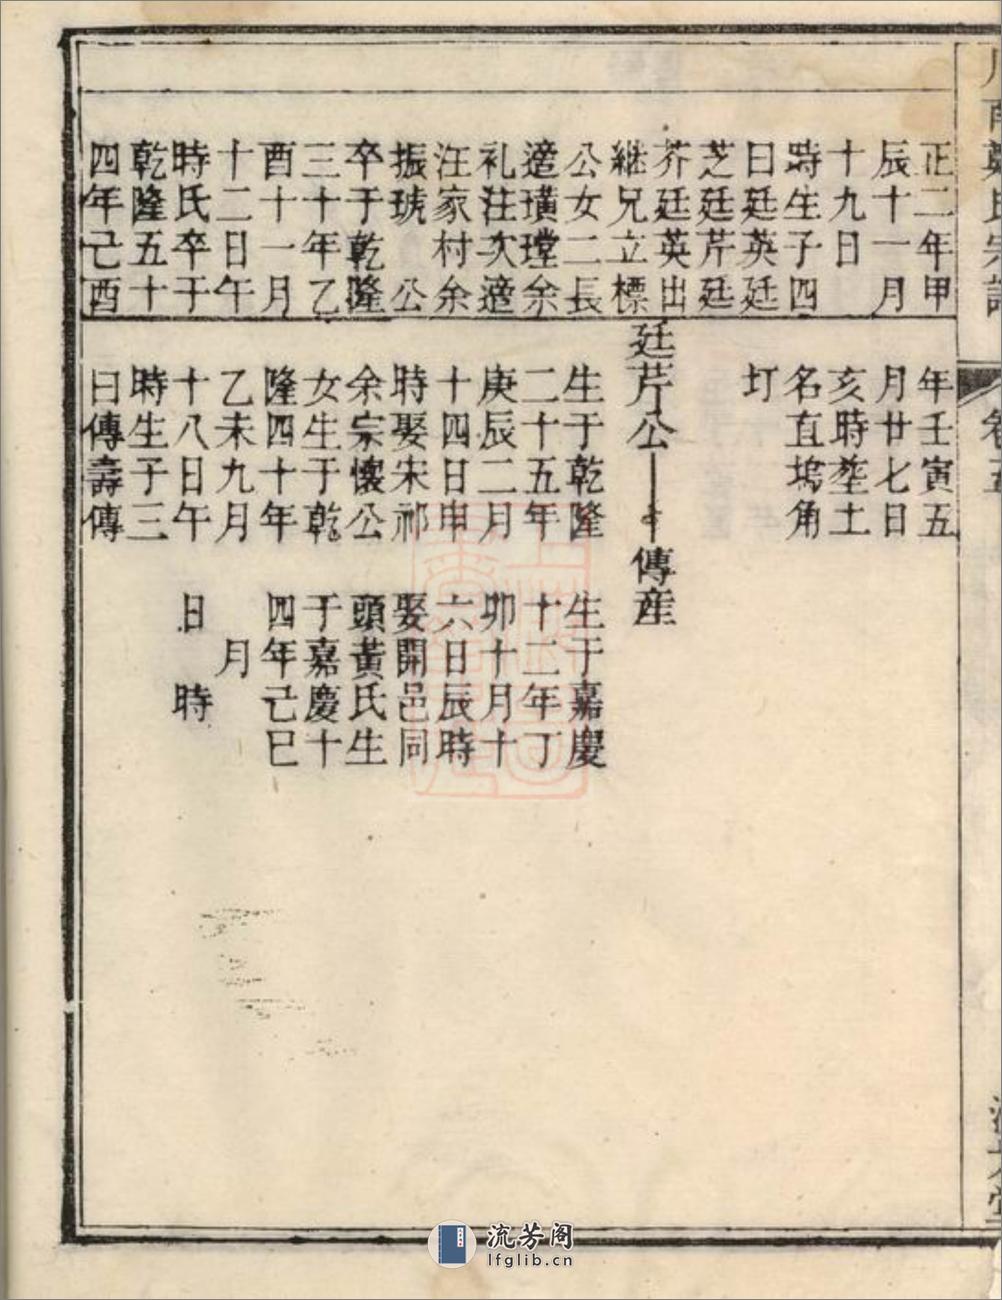 正二年甲
辰十一月
十九日
時生子四
曰廷英廷
芝廷芹廷
芥廷英出
継兄立標
公女二長
適璜瑝余
礼注次適
汪家村余
振琥 公
卒于乾隆
三十年乙
酉十一月
十二日午
時氏卒于
乾隆五十
四年己酉
年壬寅五
月廿七日
亥時塟土
名直塢角
圢
廷芹公
生于乾隆
二十五年
庚辰二月
十四日申
時娶宋祁
余宗懷公
女生于乾
隆四十年
乙未九月
十八日午
時生子三
曰傳壽傳
傳産
生于嘉慶
十二年丁
卯十月十
六日辰時
娶開邑同
頭黃氏生
于嘉慶十
四年己巳
月
日 時
卷五
流芳阁
lfglib.cn